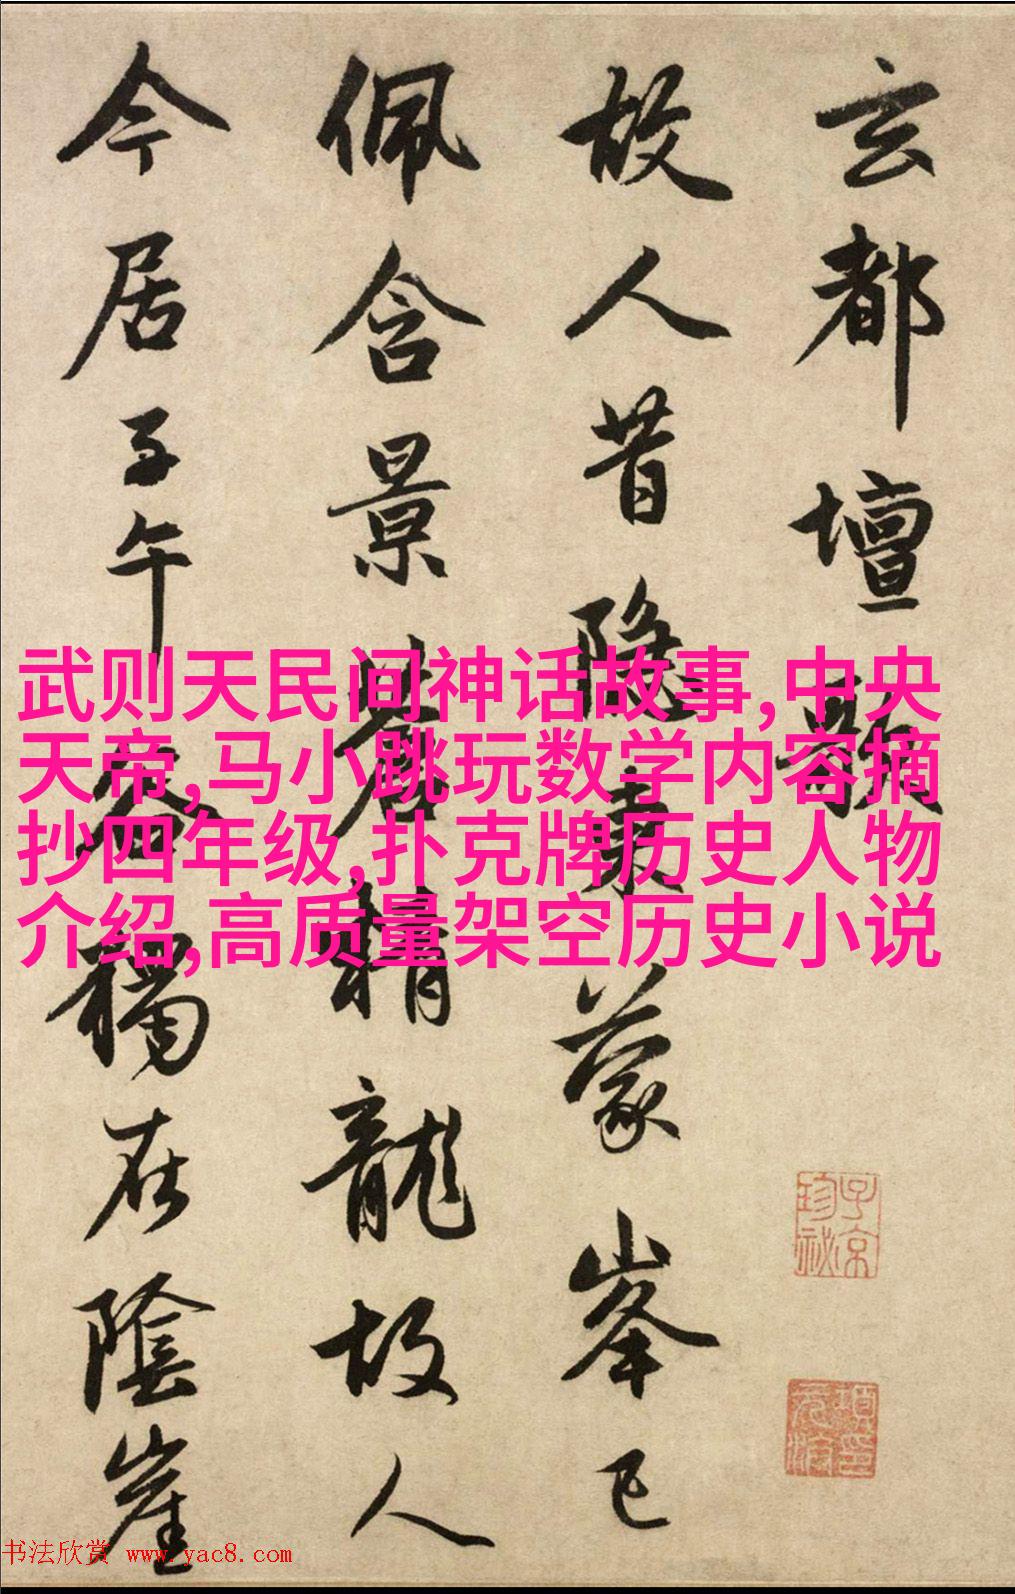 玄都壇歌
故人昔隱東蒙峯已
佩含景蒼精龍故人
今居子午谷獨在陰崖
武则天民间神话故事,中央
天帝,马小跳玩数学内容摘
抄四年级,扑克牌历史人物
介绍,高质量架空历史小说
子京珍祕
項元汴印
书法欣赏 www.yac8.com